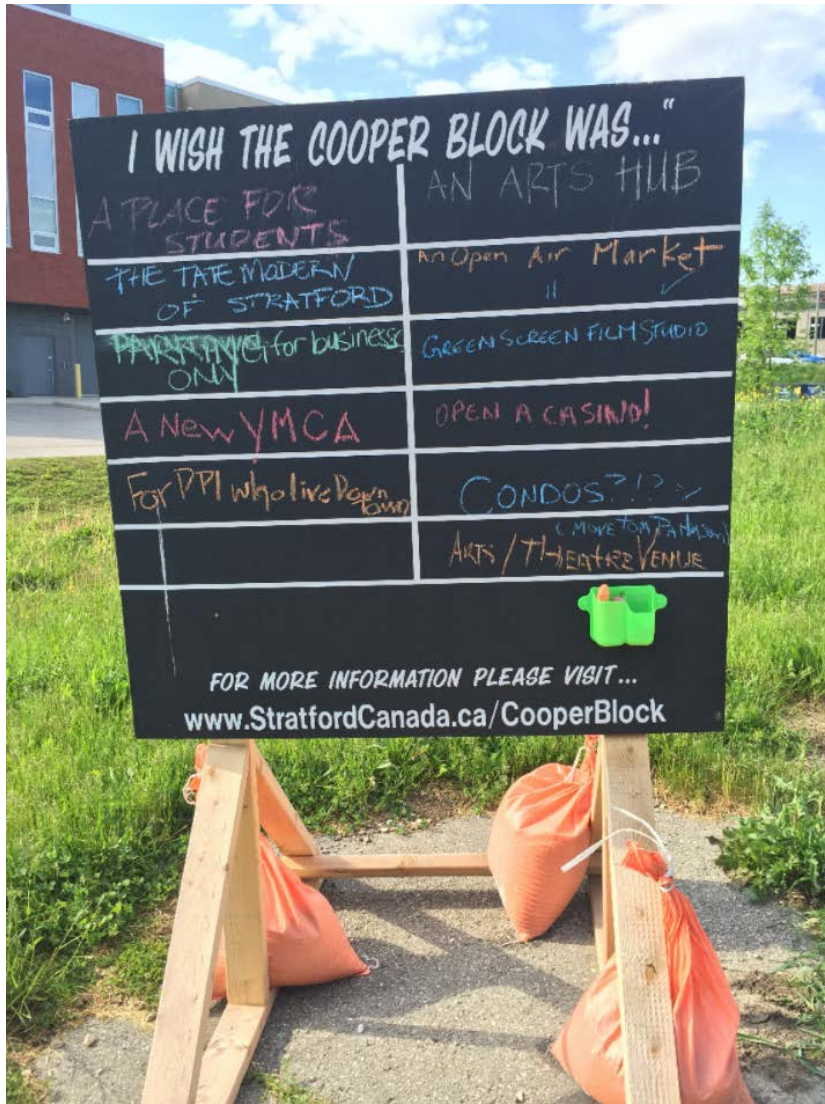 I WISH THE COOPER BLOCK WAS..."
A PLACE FOR
STUDENTS
THE TATE MODERN
OF STRATFORD
PARKING for business
ONLY
A New YMCA
For PPl who live Down
town
AN ARTS HUB
An Open Air Market
GREEN SCREEN FILM STUDIO
OPEN A CASINO!
CONDOS?!?
(MOVE TOM PATTERSON)
ARTS/THEATRE VENUE
FOR MORE INFORMATION PLEASE VISIT...
www.StratfordCanada.ca/CooperBlock